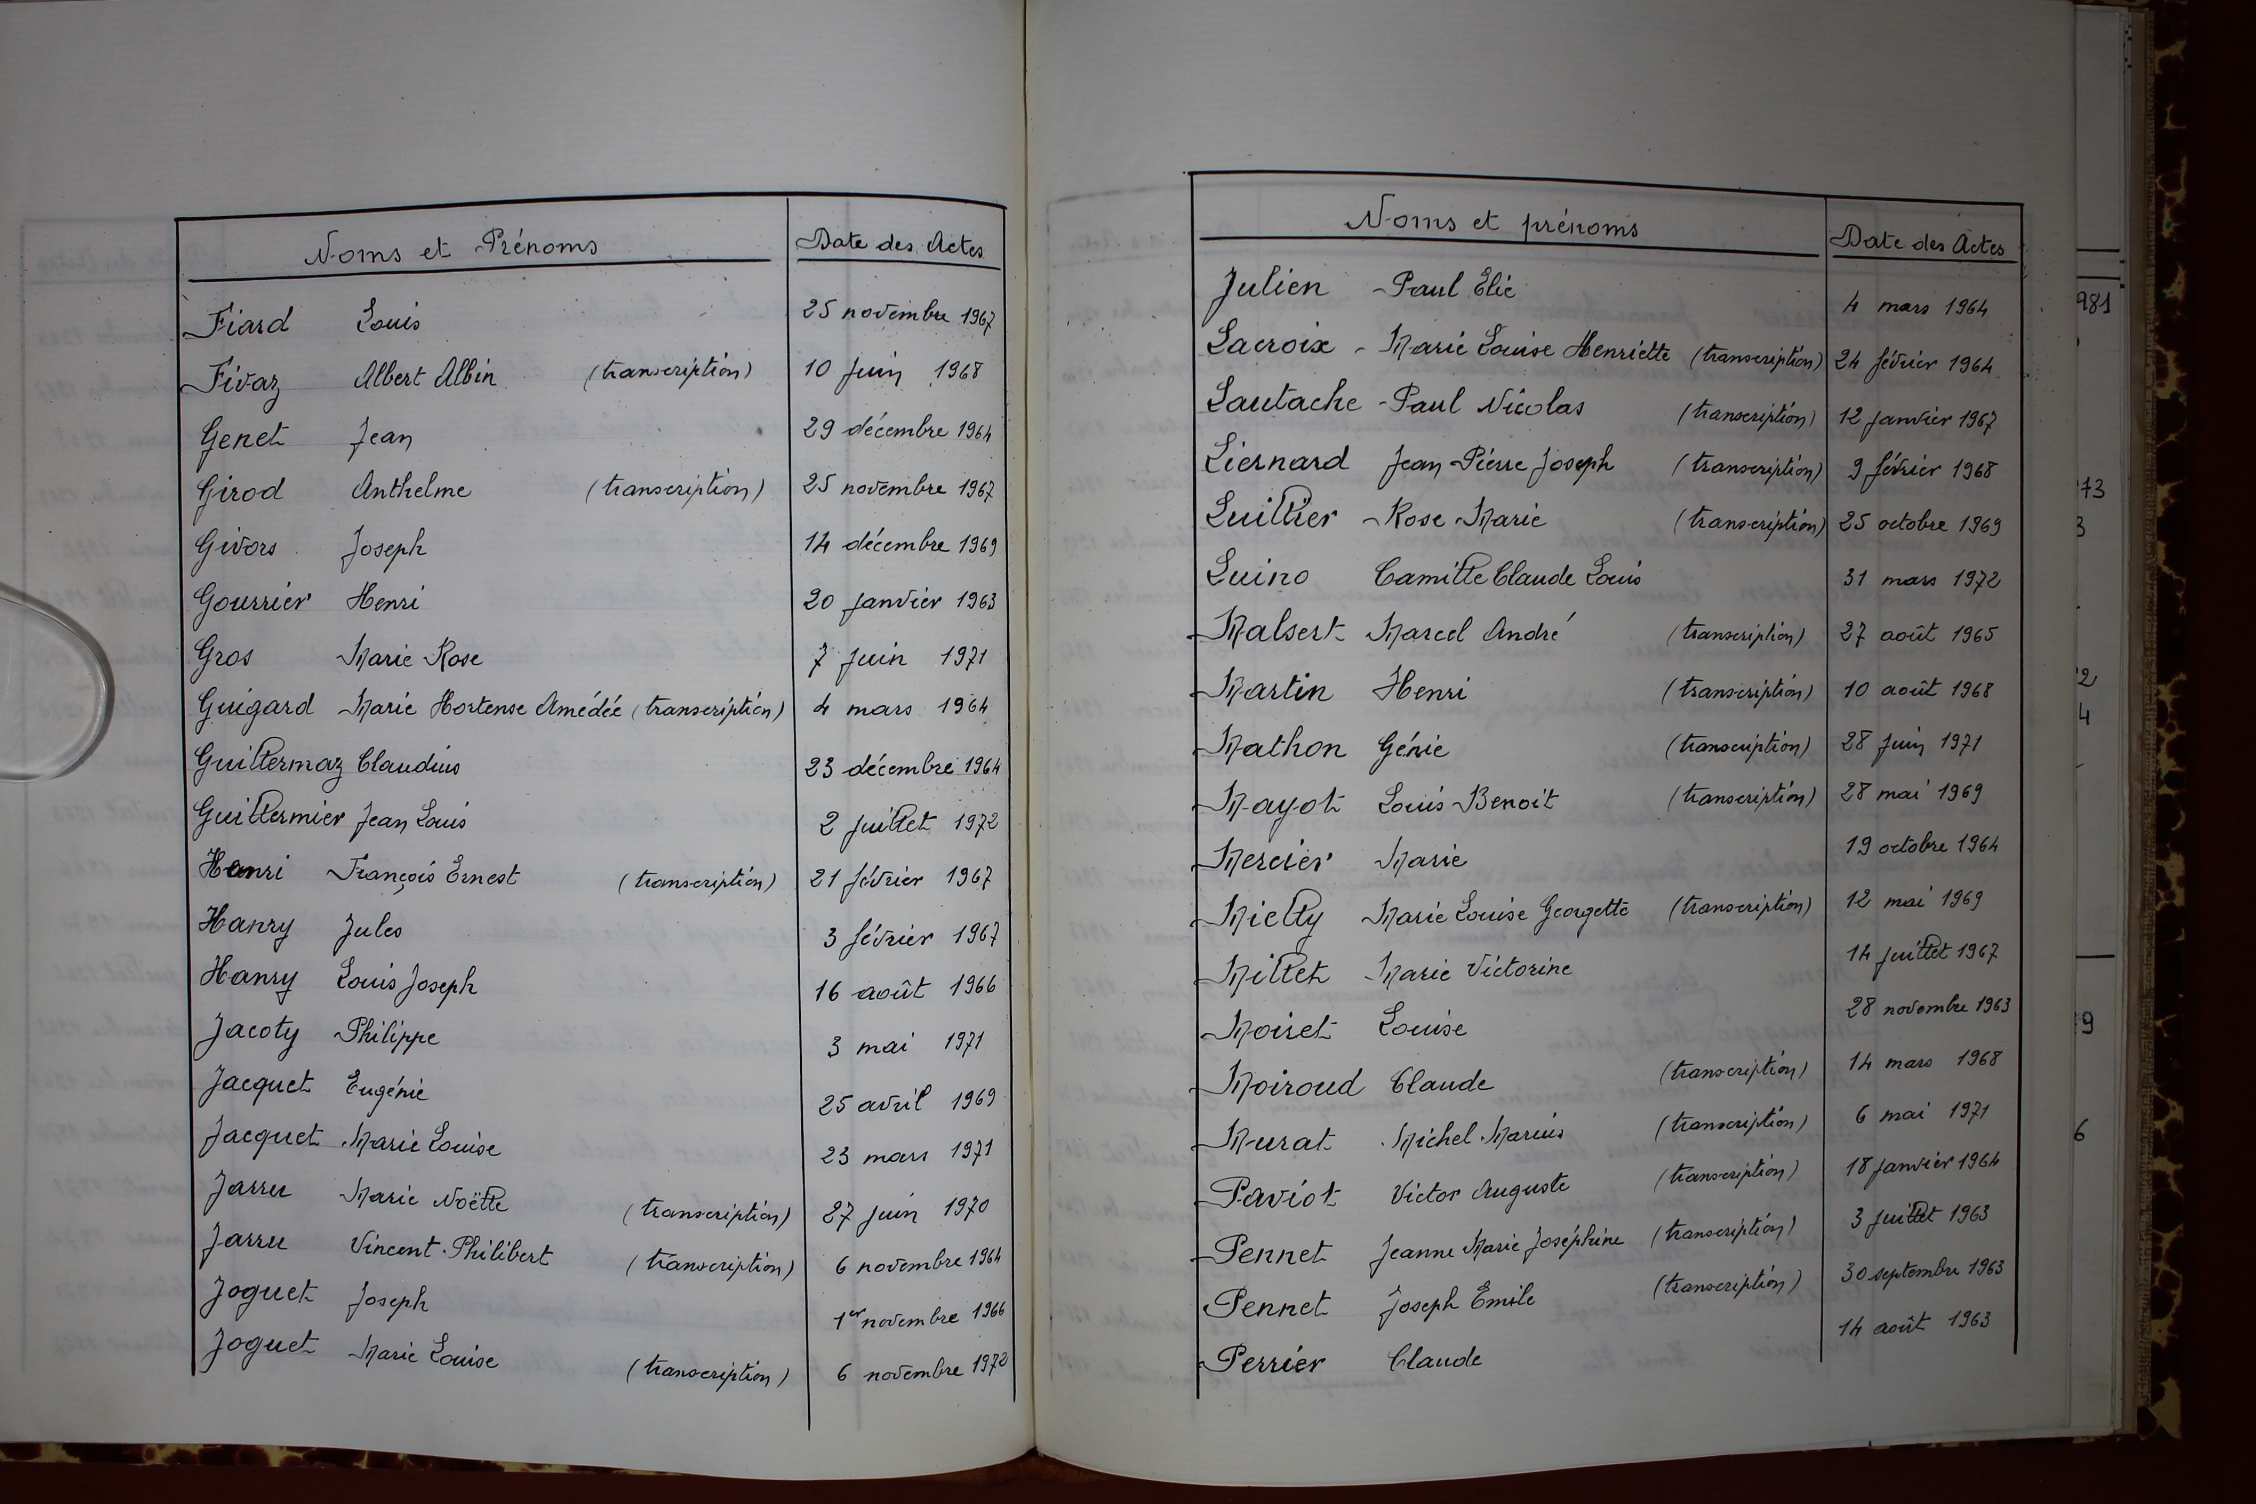 Noms et Prénoms Date des Actes
Fiard Louis 25 novembre 1967
Fivaz Albert Albin (transcription) 10 Juin 1968
Genet Jean 29 décembre 1964
Girod Anthelme (transcription) 25 novembre 1967
Givors Joseph 14 décembre 1969
Gourrier Henri 20 Janvier 1963
Gros Marie Rose 7 Juin 1971
Guigard Marie Hortense Amédée (transcription) 4 mars 1964
Guillermaz Claudius 23 décembre 1964
Guillermier Jean Louis 2 Juillet 1972
Hanri François Ernest (transcription) 21 février 1967
Hanry Jules 3 février 1967
Hanry Louis Joseph 16 août 1966
Jacoty Philippe 3 mai 1971
Jacquet Eugénie 25 avril 1969
Jacquet Marie Louise 23 mars 1971
Jarru Marie Noëlle (transcription) 27 Juin 1970
Jarru Vincent Philibert (transcription) 6 novembre 1964
Joguet Joseph 1er novembre 1966
Joguet Marie Louise (transcription) 6 novembre 1972
Noms et prénoms Date des Actes
Julien Paul Elie 4 mars 1964
Lacroix - Marie Louise Henriette (transcription) 24 février 1964
Lautache - Paul Nicolas (transcription) 12 Janvier 1967
Liernard Jean Pierre Joseph (transcription) 9 février 1968
Luillier Rose Marie (transcription) 25 octobre 1969
Luino Camille Claude Louis 31 mars 1972
Malsert Marcel André (transcription) 27 août 1965
Martin Henri (transcription) 10 août 1968
Mathon Génie (transcription) 28 Juin 1971
Mayot Louis Benoit (transcription) 28 mai 1969
Mercier Marie 19 octobre 1964
Mielly Marie Louise Georgette (transcription) 12 mai 1969
Millet Marie Victorine 14 Juillet 1967
Moiret Louise 28 novembre 1963
Moiroud Claude (transcription) 14 mars 1968
Murat Michel Marius (transcription) 6 mai 1971
Paviot Victor Auguste (transcription) 18 Janvier 1964
Pennet Jeanne Marie Joséphine (transcription) 3 Juillet 1963
Pennet Joseph Emile (transcription) 30 septembre 1963
Perrier Claude 14 août 1963